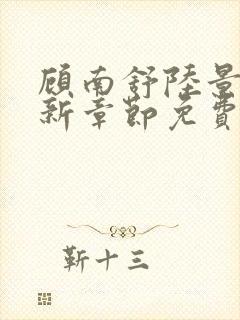 顾南舒陸景
新章節免費
靳十三